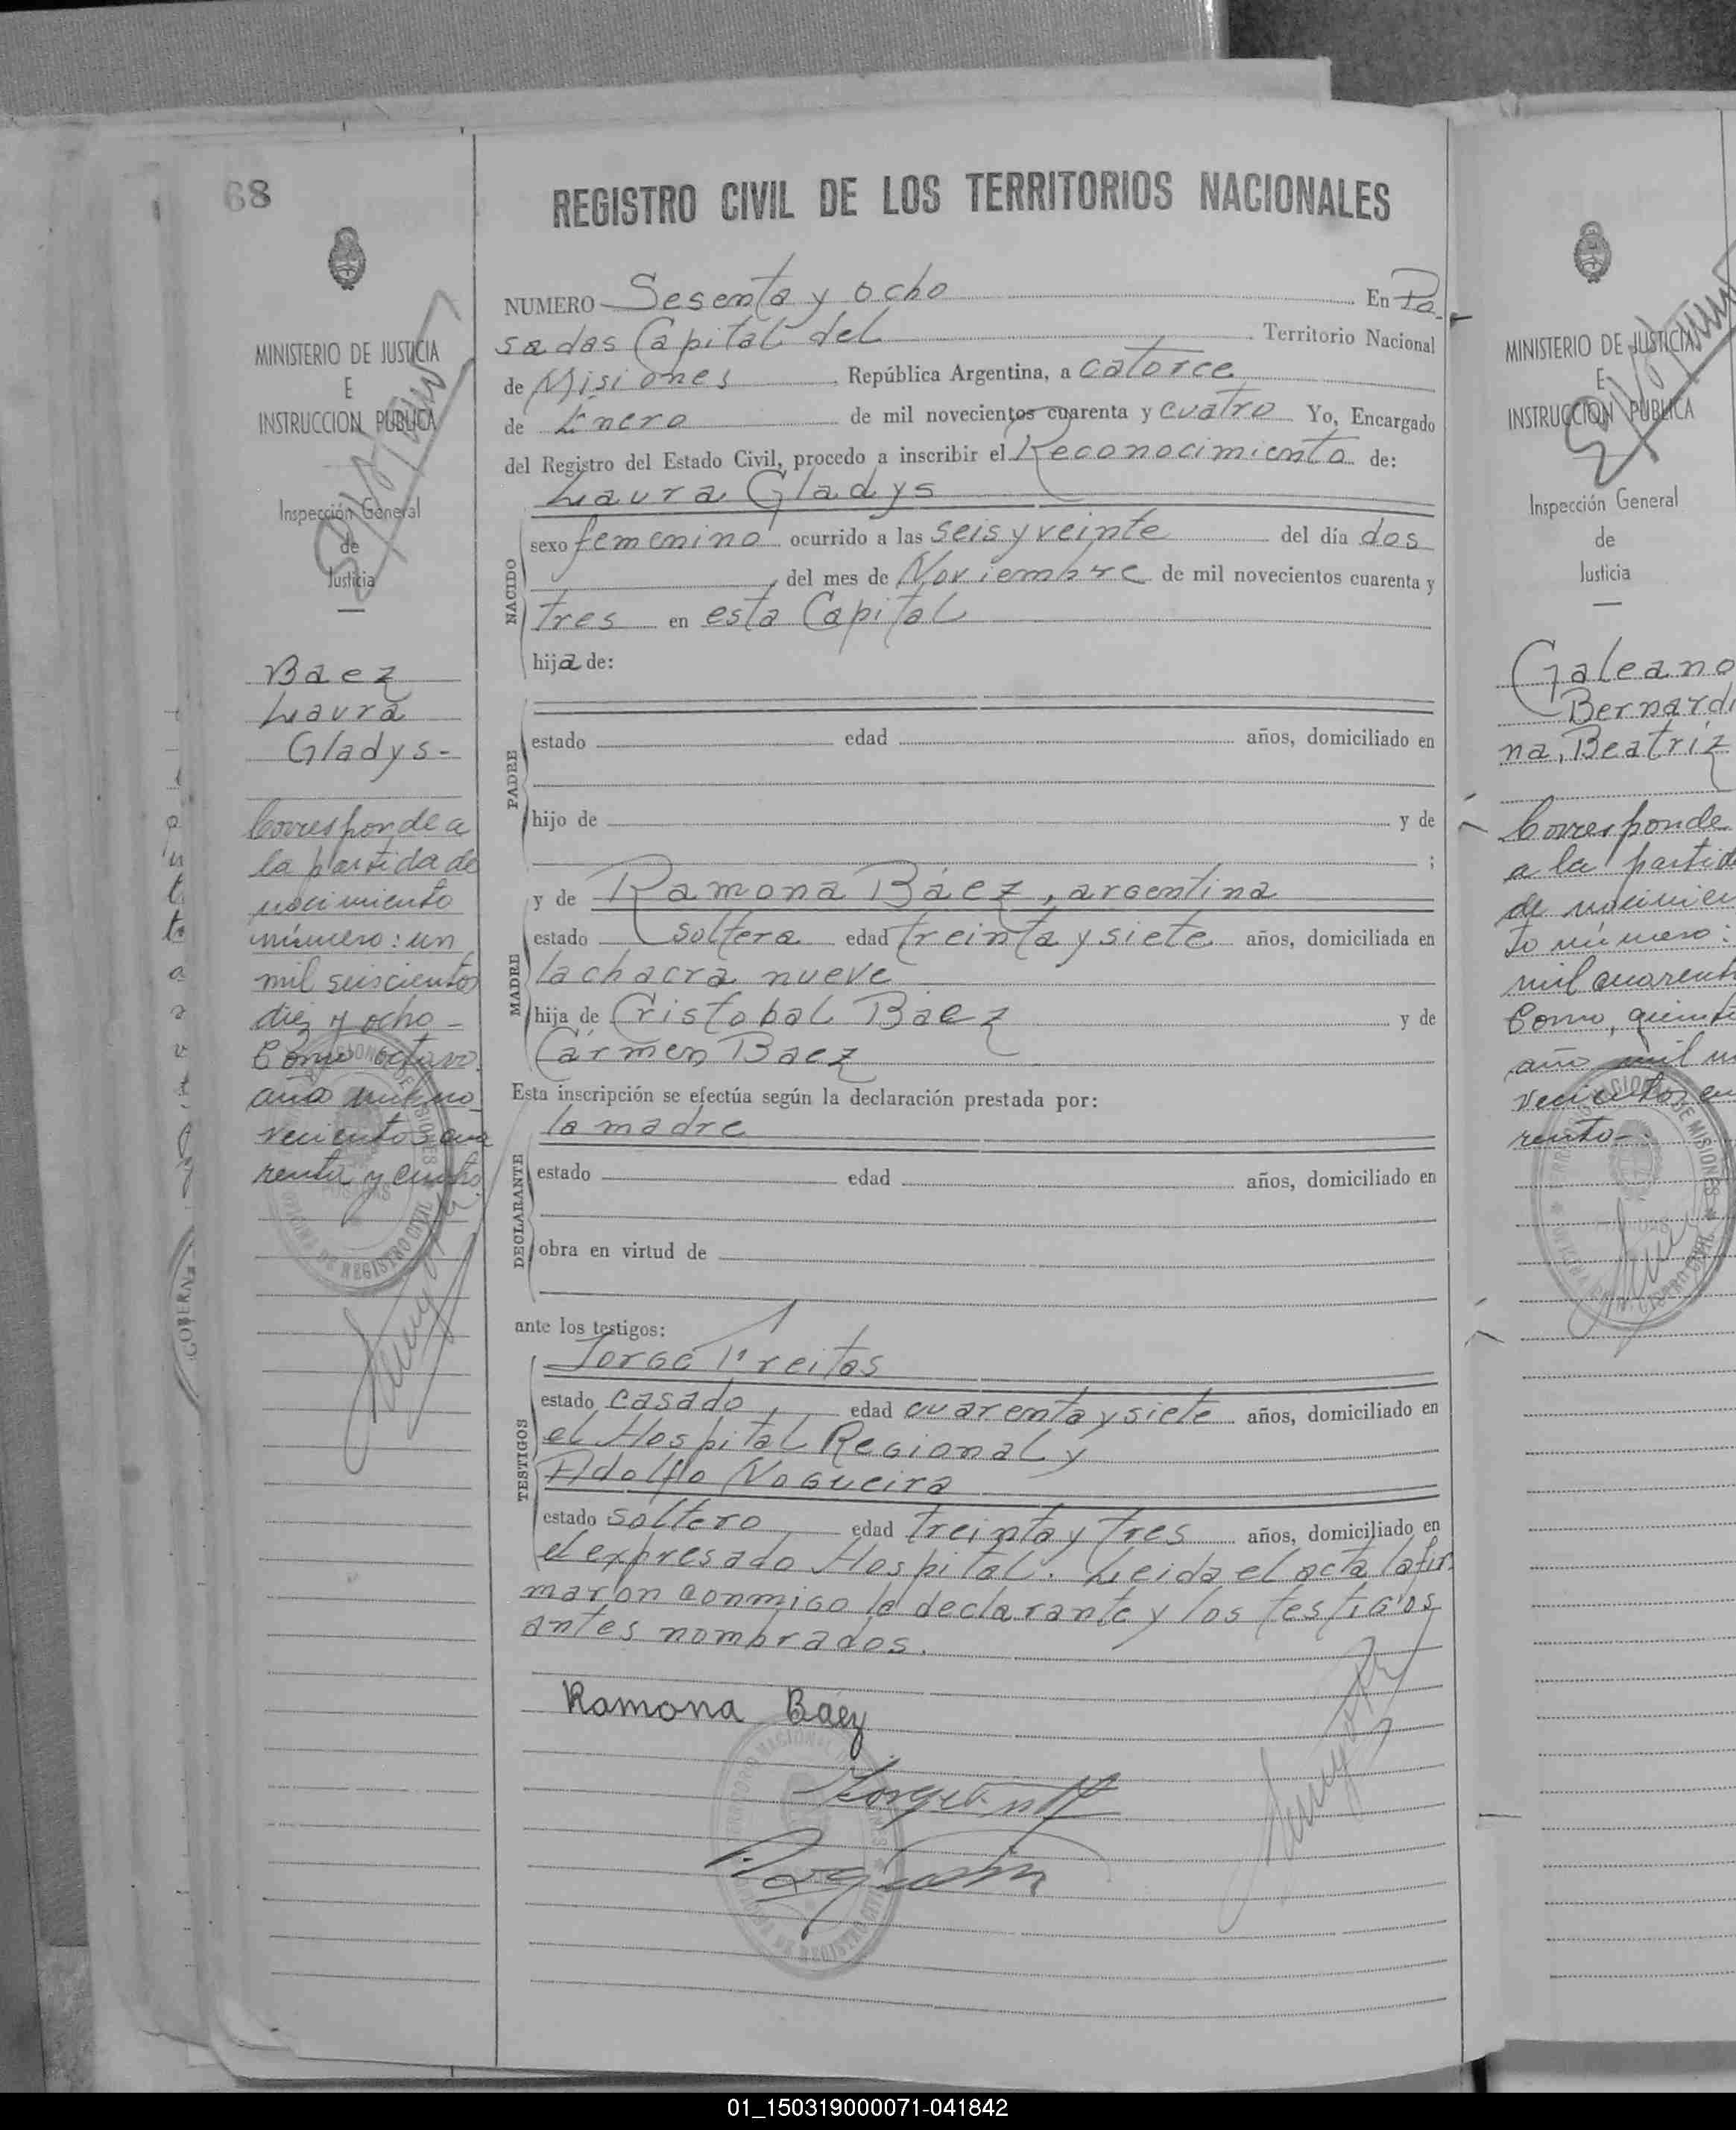 68
REGISTRO CIVIL DE LOS TERRITORIOS NACIONALES
MINISTERIO DE JUSTICIA
E
INSTRUCCION PUBLICA
Inspección General
de
Justicia
Baez
Laura
Gladys-
Corresponde a
la partida de
nacimiento
número: un
mil seiscientos
diez y ocho-
Tomo octavo.
año mil no-
vecientos cua
renta y cuatro.
NUMERO Sesenta y ocho En Po
sadas Capital del Territorio Nacional
de Misiones, República Argentina, a catorce
de Enero de mil novecientos cuarenta y cuatro Yo, Encargado
del Registro del Estado Civil, procedo a inscribir el Reconocimiento de:
Laura Gladys
NACIDO
sexo femenino ocurrido a las seis y veinte del día dos
, del mes de Noviembre de mil novecientos cuarenta y
tres en esta Capital
hija de:
PADRE
estado edad años, domiciliado en
hijo de y de
;
MADRE
y de Ramona Báez, argentina
estado soltera edad treinta y siete años, domiciliada en
la chacra nueve
hija de Cristobal Báez y de
Cármen Baez
Esta inscripción se efectúa según la declaración prestada por:
DECLARANTE
la madre
estado edad años, domiciliado en
obra en virtud de
ante los testigos:
TESTIGOS
Jorge Freitas
estado casado, edad cuarenta y siete años, domiciliado en
el Hospital Regional y
Adolfo Nogueira
estado soltero edad treinta y tres años, domiciliado en
el expresado Hospital. Leida el acta la fir
maron conmigo la declarante y los testigos
antes nombrados.
Ramona Báez
MINISTERIO DE JUSTICIA
E
INSTRUCCION PUBLICA
Inspección General
de
Justicia
Galeano
Bernardi
na, Beatríz
Corresponde
a la partid
de nacimien
to número:
mil cuarent
Tomo, quinto
año mil no
vecientos cua
renta-
01_150319000071-041842